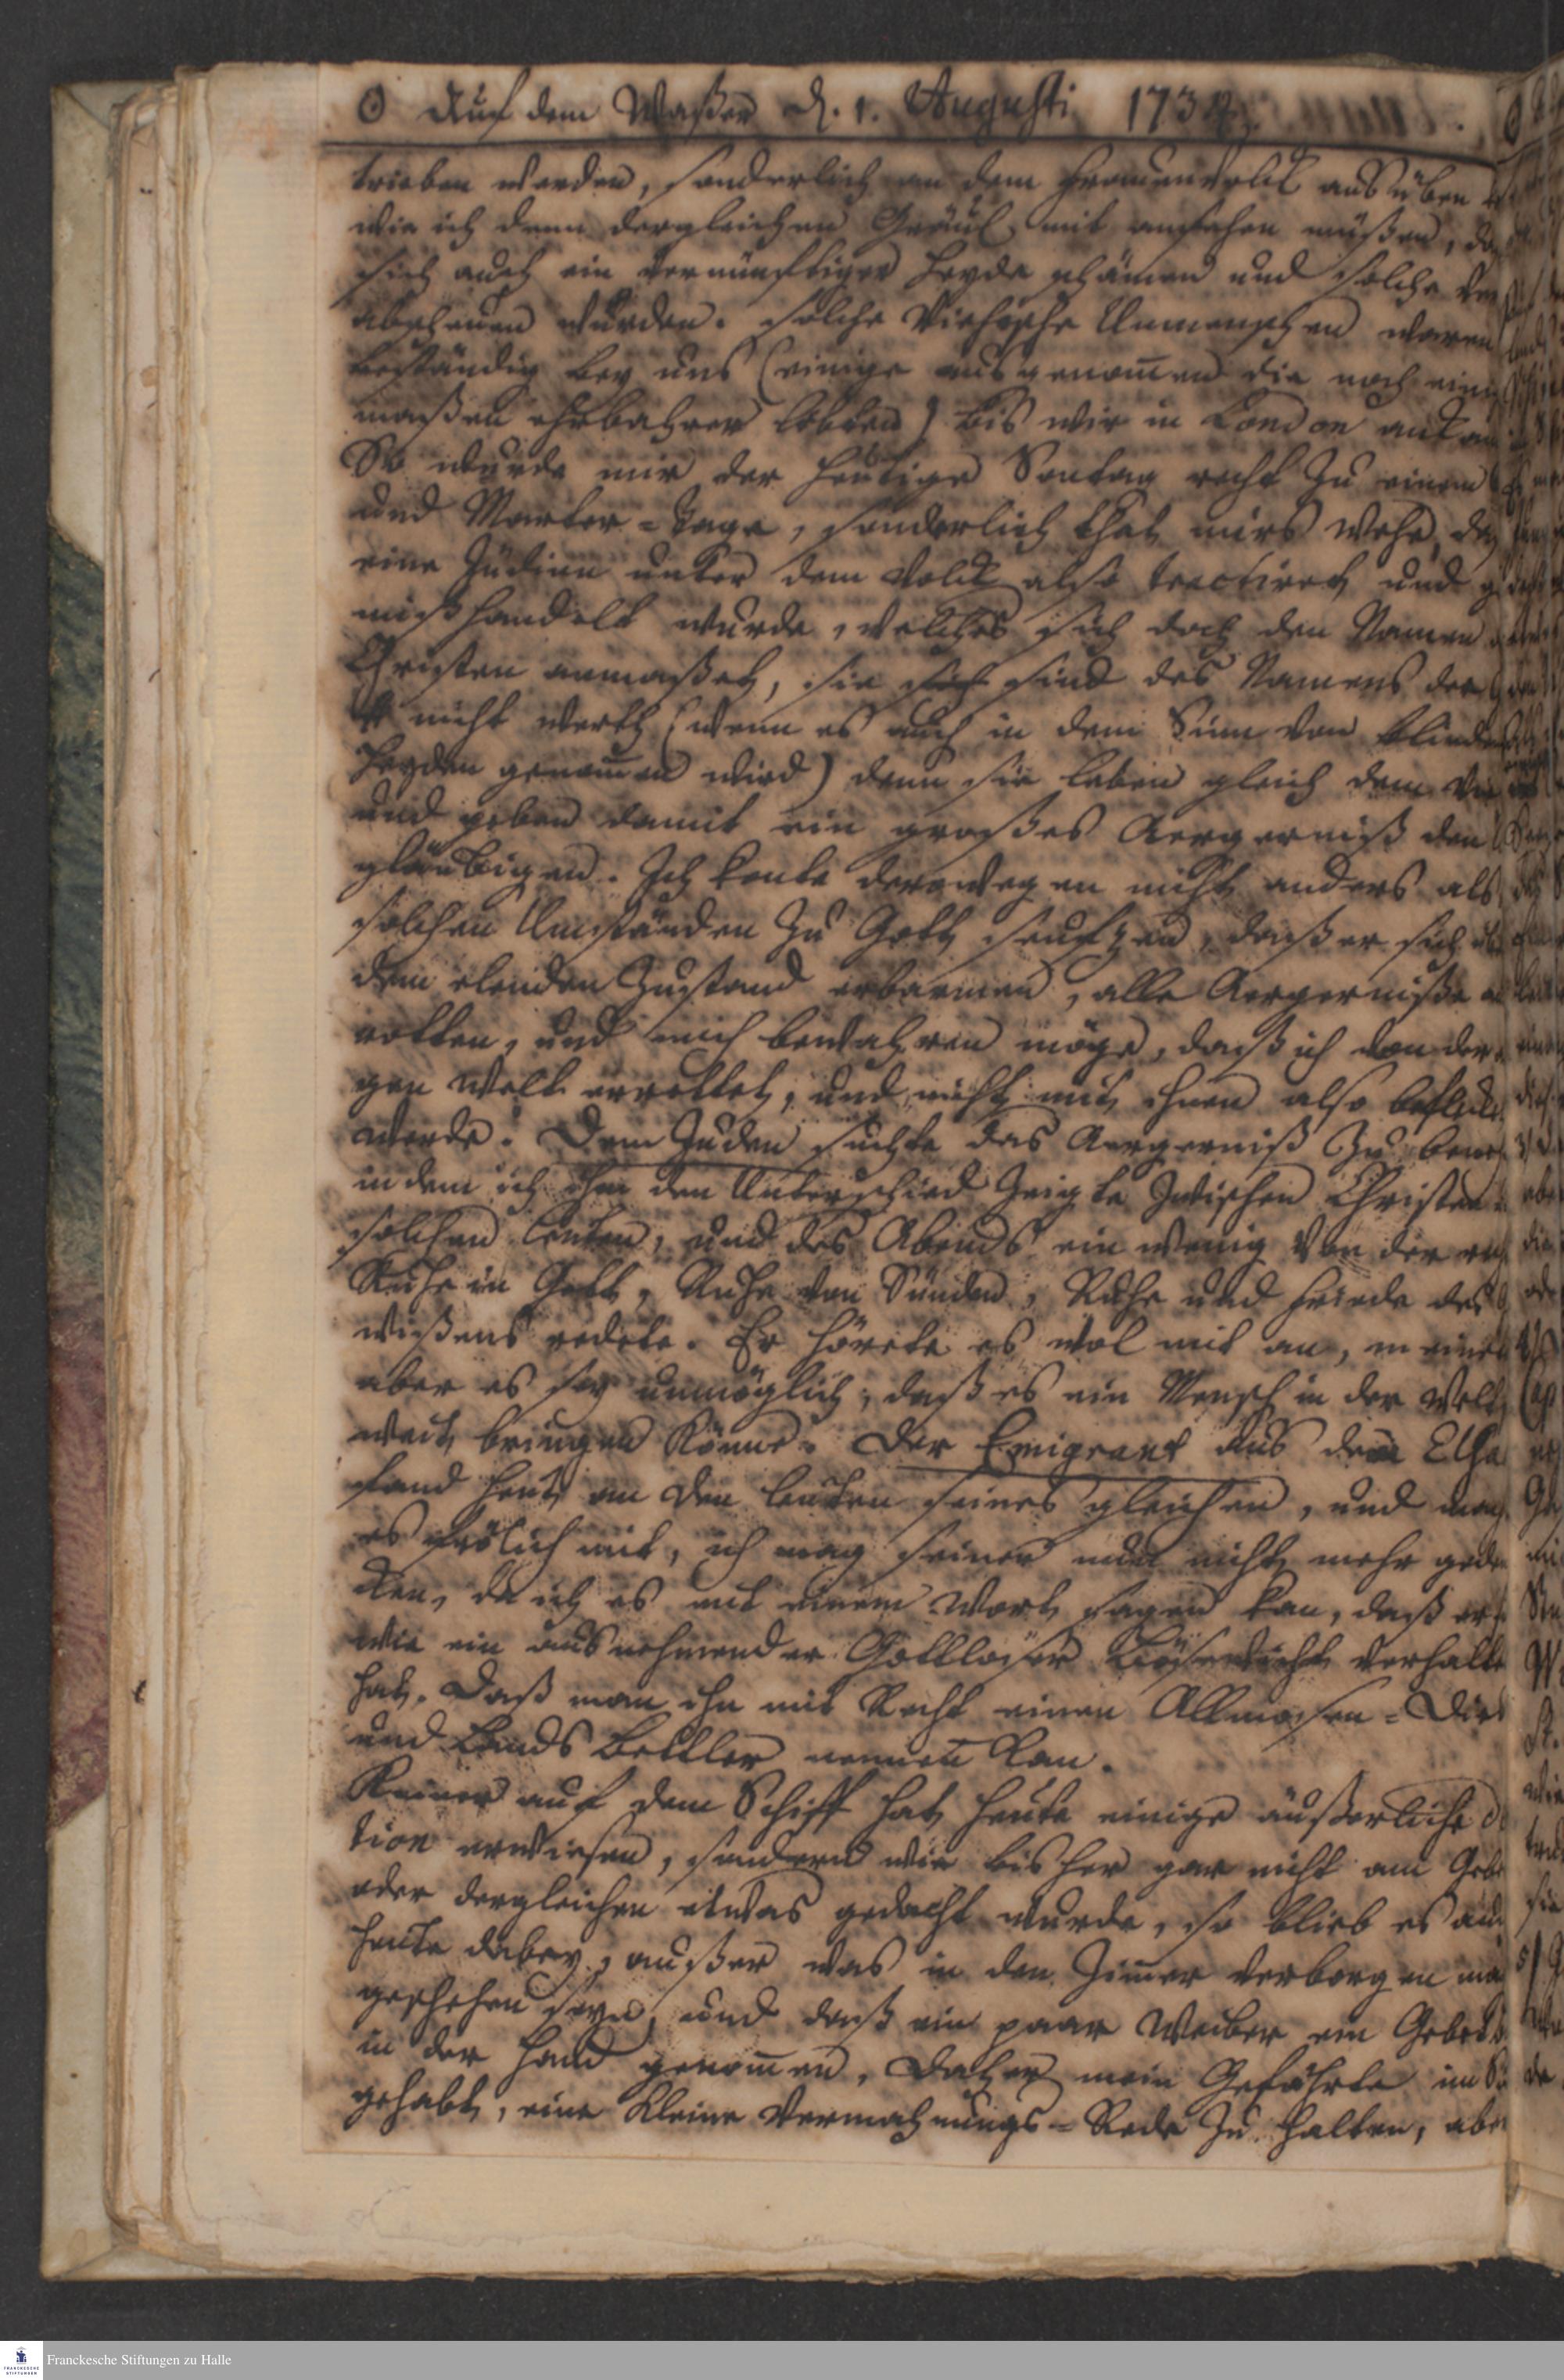 ☉ Auf dem Waßer d. 1. Augusti 1734.
trieben werden, sonderlich an dem Frauenvolck ausüben
wie ich denn dergleichen Gräuel mit ansehen müßen, da
sich auch ein vernünftiger Heyde schämen und solche ver
abscheuen würden. Solche Viehische Unmenschen waren
beständig bey uns (einige ausgenom̄en die noch eini
maßen ehrbahrer lebten) bis wir in London ankam
So wurde mir der heutige Sontag recht zu einem
und Marter-Tage, sonderlich that mirs wehe, daß
eine Jüdinn unter dem Volck also tractiret und
mißhandelt wurde, welches sich doch den Namen
Christen anmaßet, sie sich sind des Namens der
nicht werth (wenn es auch in dem Sinn von blinden
Heyden genom̄en wird) denn sie leben gleich dem Vie
und geben damit ein großes Aergerniß den
gläubigen. Ich konte deswegen nicht anders als
solchen Umständen zu Gott seufzen, daß er sich
dem elenden Zustand erbarmen, alle Aergerniße
rotten, und mich bewahren möge, daß ich von der
gen Welt errettet, und nicht mit ihnen also befleckt
werde. Dem Juden suchte das Aergerniß zu beneh
indem ich ihm den Unterschied zeigte zwischen Christen
solchen Leuten, und des Abends ein wenig von der
Ruhe in Gott, Ruhe von Sünden, Ruhe und Friede des
wißens redete. Er hörete es wol mit an, meinet
aber es sey unmöglich, daß es ein Mensch in der Welt
weit bringen könne. Der Emigrant aus dem Elsa
fand heute an den Leuten seines gleichen, und mach
es frölich mit, ich mag seiner nun nicht mehr geden
cken, da ich es mit einem Wort sagen kan, daß er
wie ein ausnehmender Gottloser Bösewicht verhalte
hat. Daß man ihn mit Recht einen Allmosen-Dieb
und Lands Bettler nennen kan.
Keiner auf dem Schiff hat heute einige äußerliche
tion erwiesen, sondern wie bisher gar nicht ans Gebe
oder dergleichen etwas gedacht wurde, so blieb es auch
heute dabey, außer was in den Zim̄er verborgen mag
geschehen seyn, und daß ein paar Weiber ein Gebet
in der Hand genom̄en. Daher mein Gefährte im Si
gehabt, eine kleine Vermahnungs-Rede zu halten, aber
Franckesche Stiftungen zu Halle